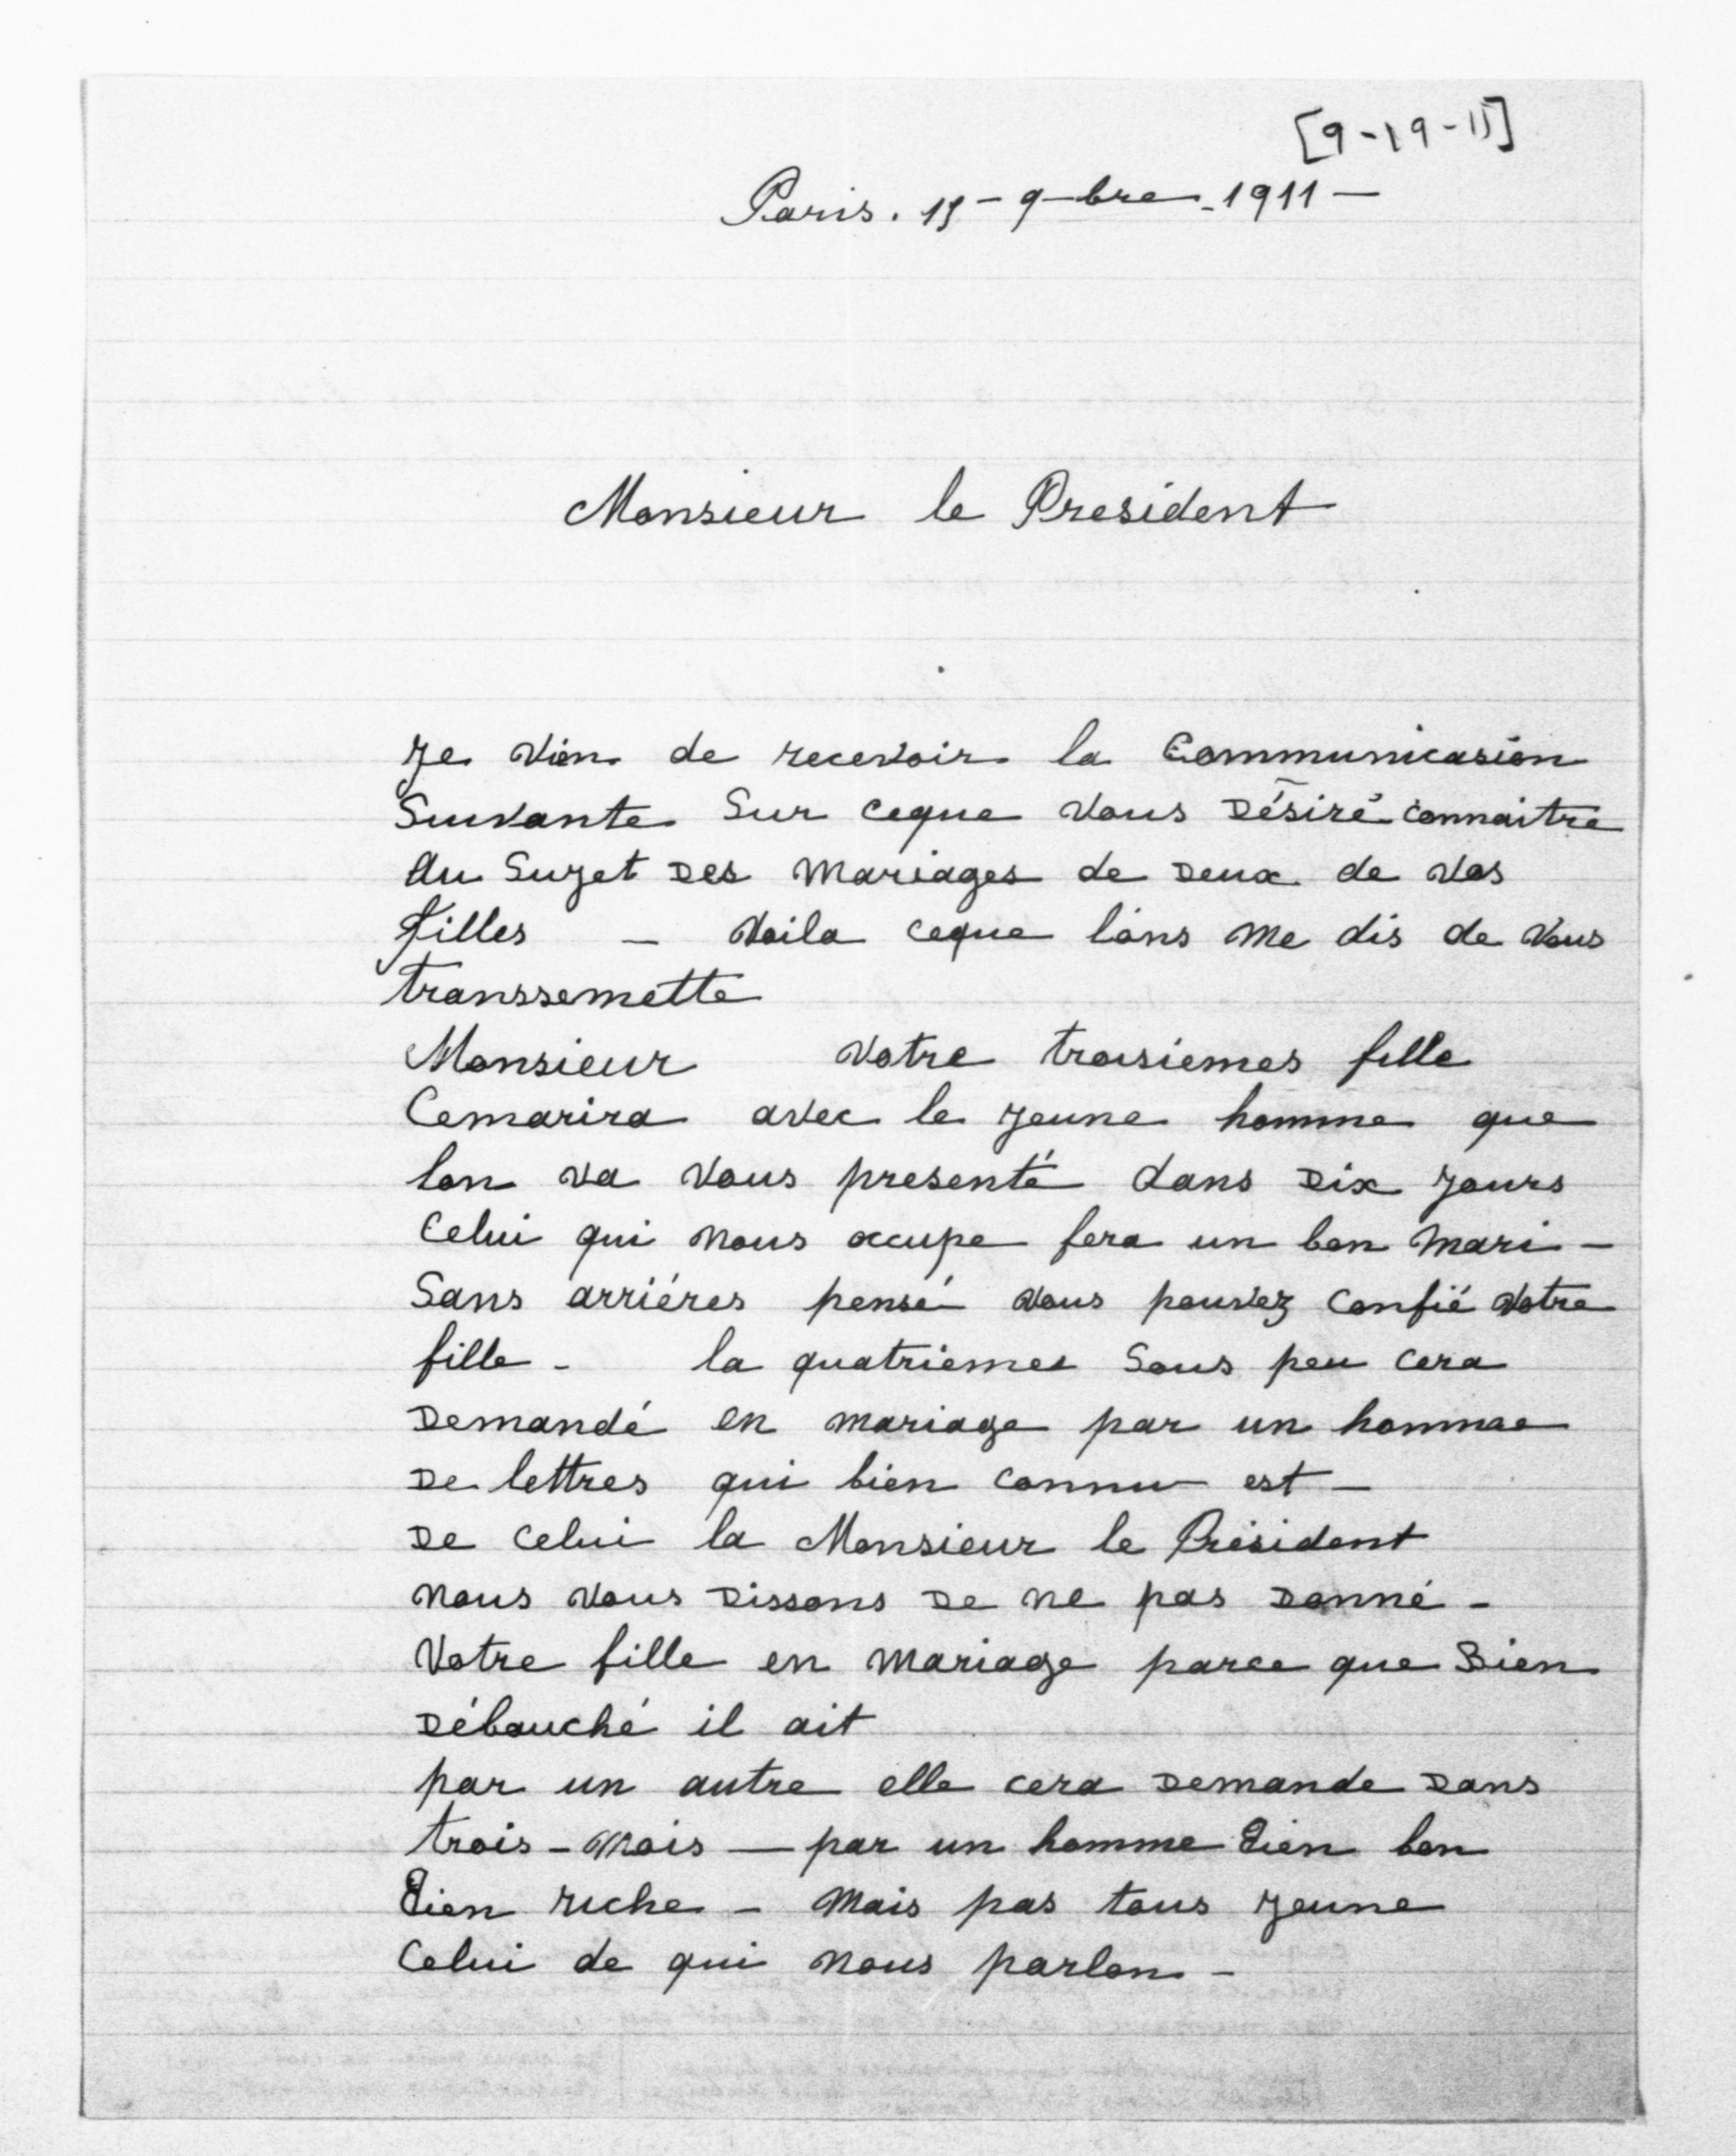 [9-19-11]
Paris. 19-9-bre-1911-
Monsieur le President
Je vien de recevoir la Communicasion
Suivante Sur ceque vous Désiré connaitre
Au Sujet Des Mariages de Deux de vos
filles - voila ceque l'ons me dis de vous
transsemette
Monsieur votre troisiemes fille
Cemarira avec le jeune homme que
lon va vous presenté dans Dix jours
Celui qui nous occupe fera un bon mari -
Sans arriéres pensé vous pouvez confié votre
fille - la quatriemes Sous peu cera
Demandé en mariage par un homme
De lettres qui bien connu est -
De celui la Monsieur le Président
nous vous Dissons De ne pas Donné -
Votre fille en mariage parce que Bien
Débauché il ait
par un autre elle cera Demande Dans
trois - mois - par un homme Bien bon
Bien riche - mais pas tous jeune
Celui de qui nous parlon -